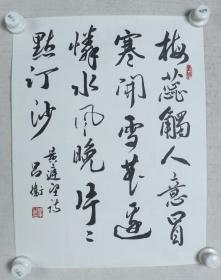 梅蕊觸人意冒
寒開雪花遥
憐水風晚片〻
點汀沙
黄庭堅詩
吕衡